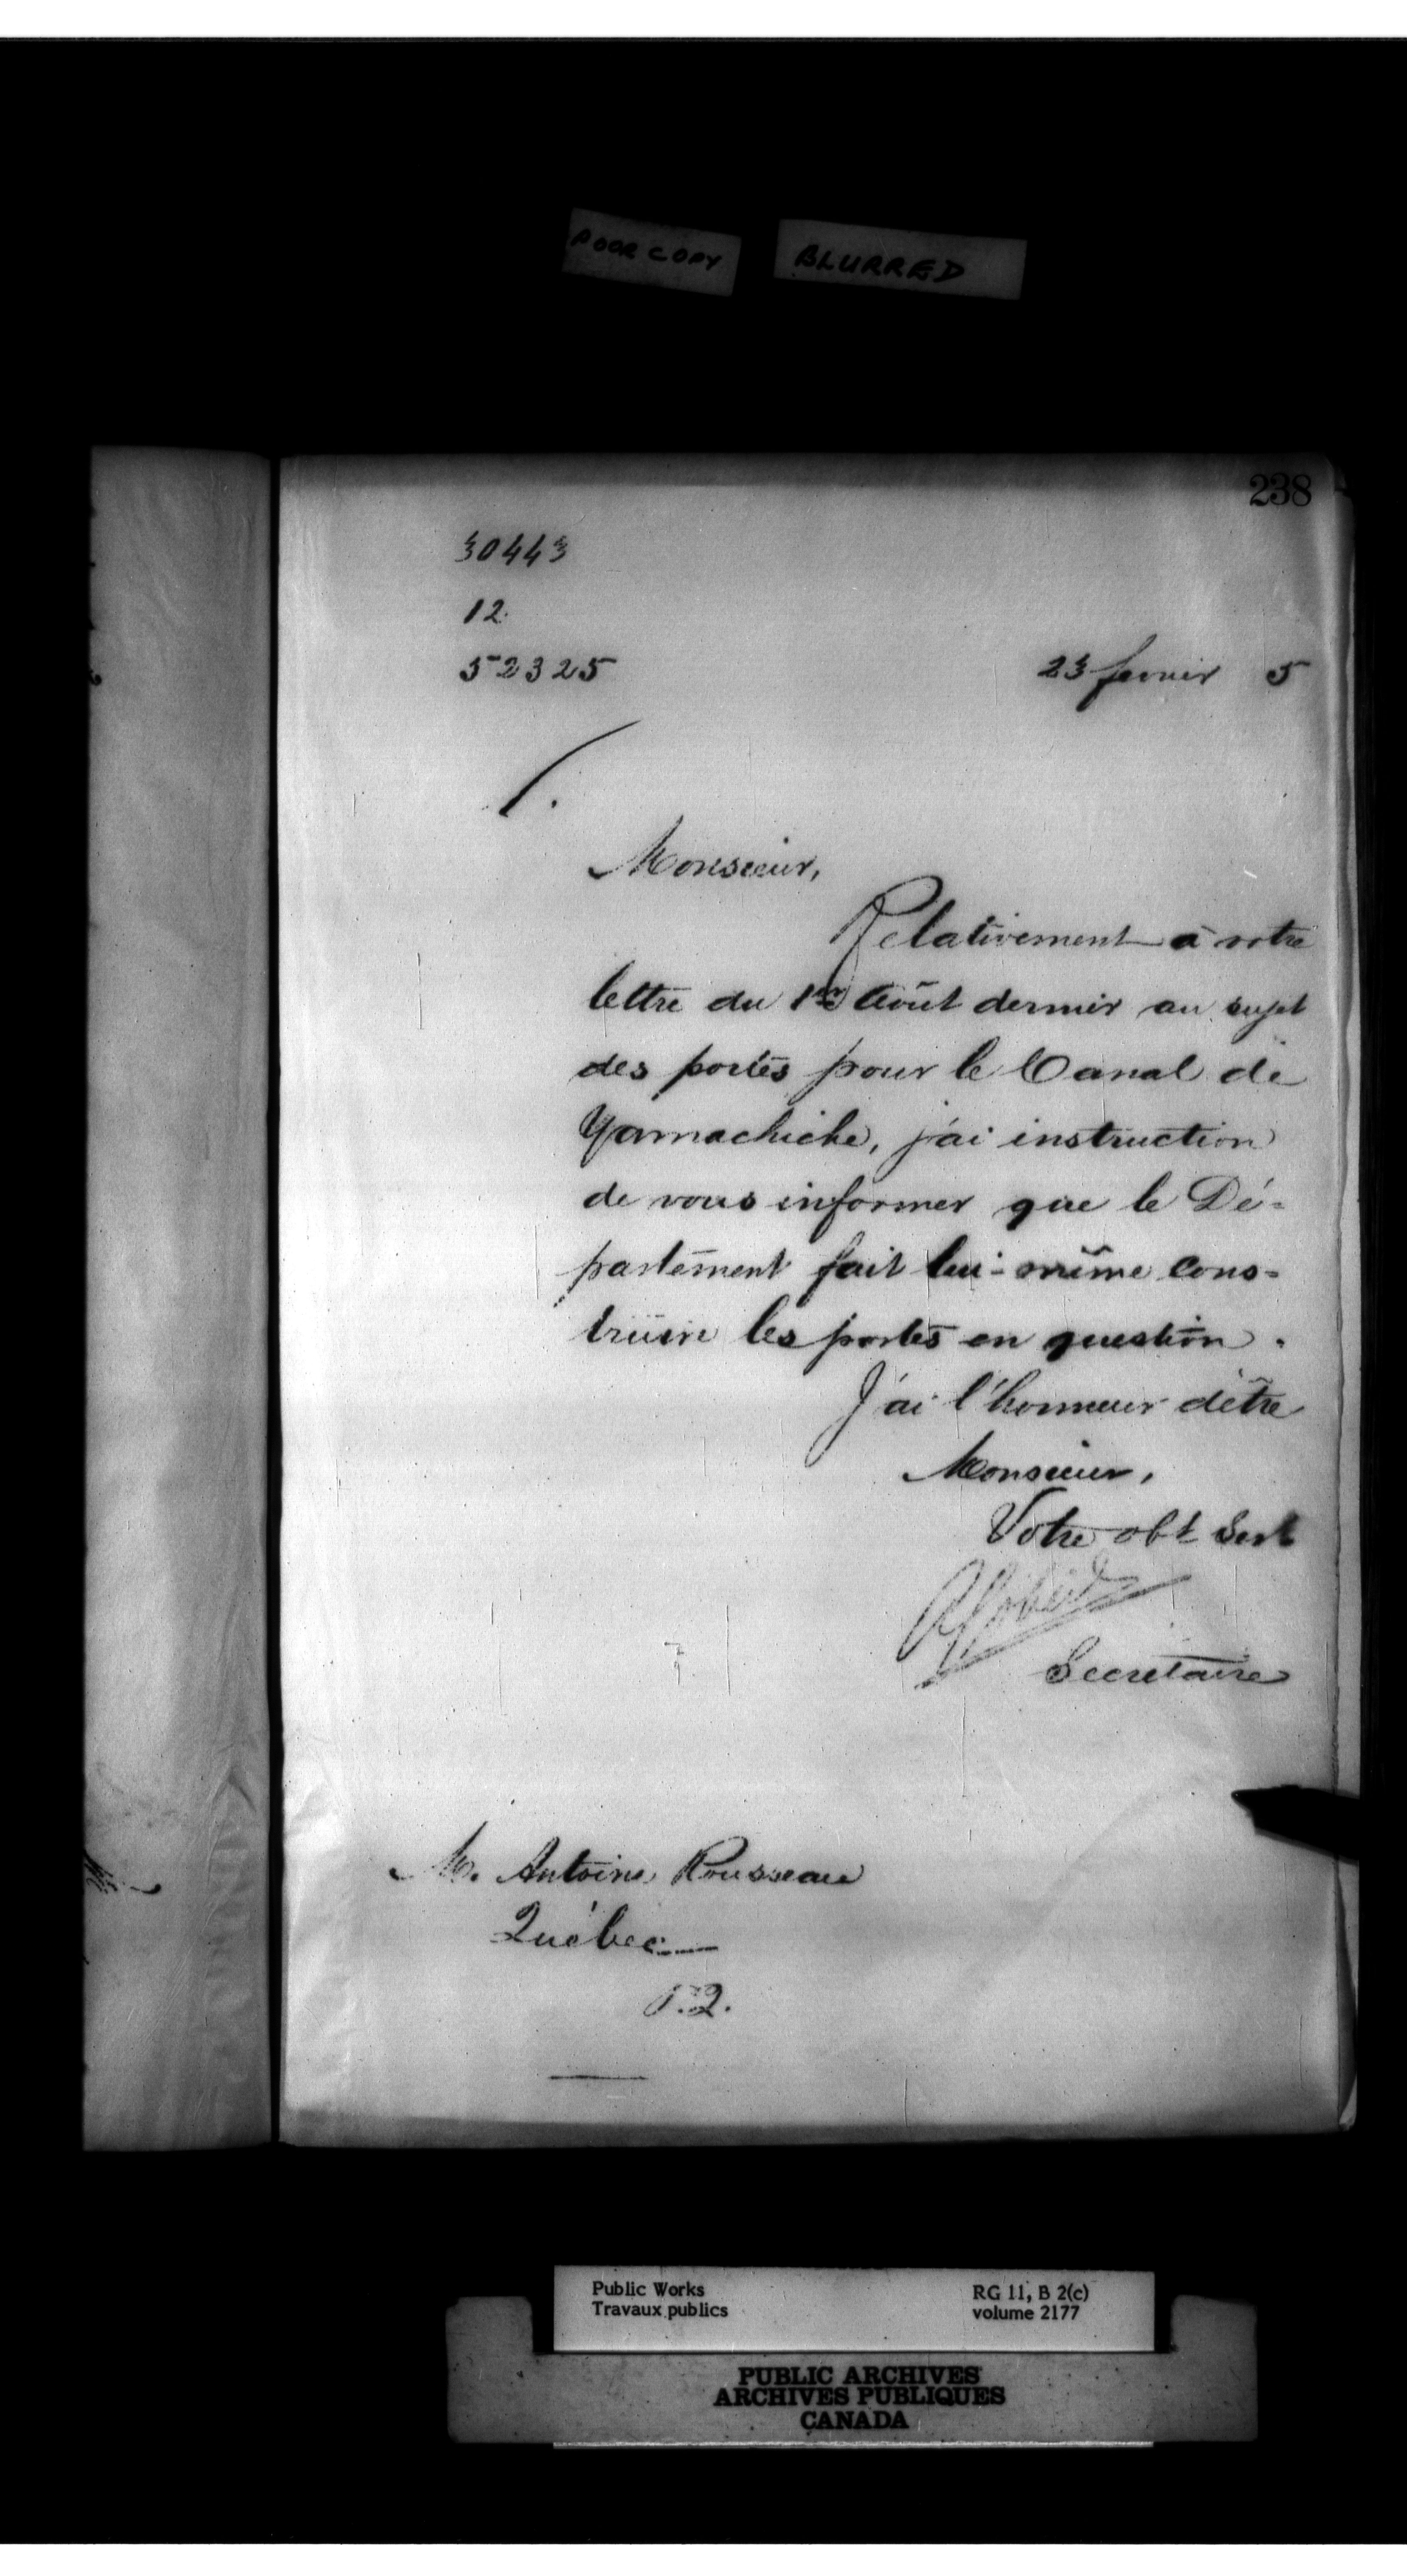 POOR COPY
BLURRED
238
30443
12.
52325
23 fevrier 5
Monsieur,
Relativement à votre
lettre du 1er Août dernier au sujet
des portes pour le Canal de
Yamachiche, j'ai instruction
de vous informer que le Dé-
partement fait lui-même cons-
truire les portes en question.
J'ai l'honneur d'être
Monsieur,
Votre obt Sert
Secretaire
M. Antoine Rousseau
Québec
P.Q.
Public Works
Travaux publics
RG 11, B 2(c)
volume 2177
PUBLIC ARCHIVES
ARCHIVES PUBLIQUES
CANADA